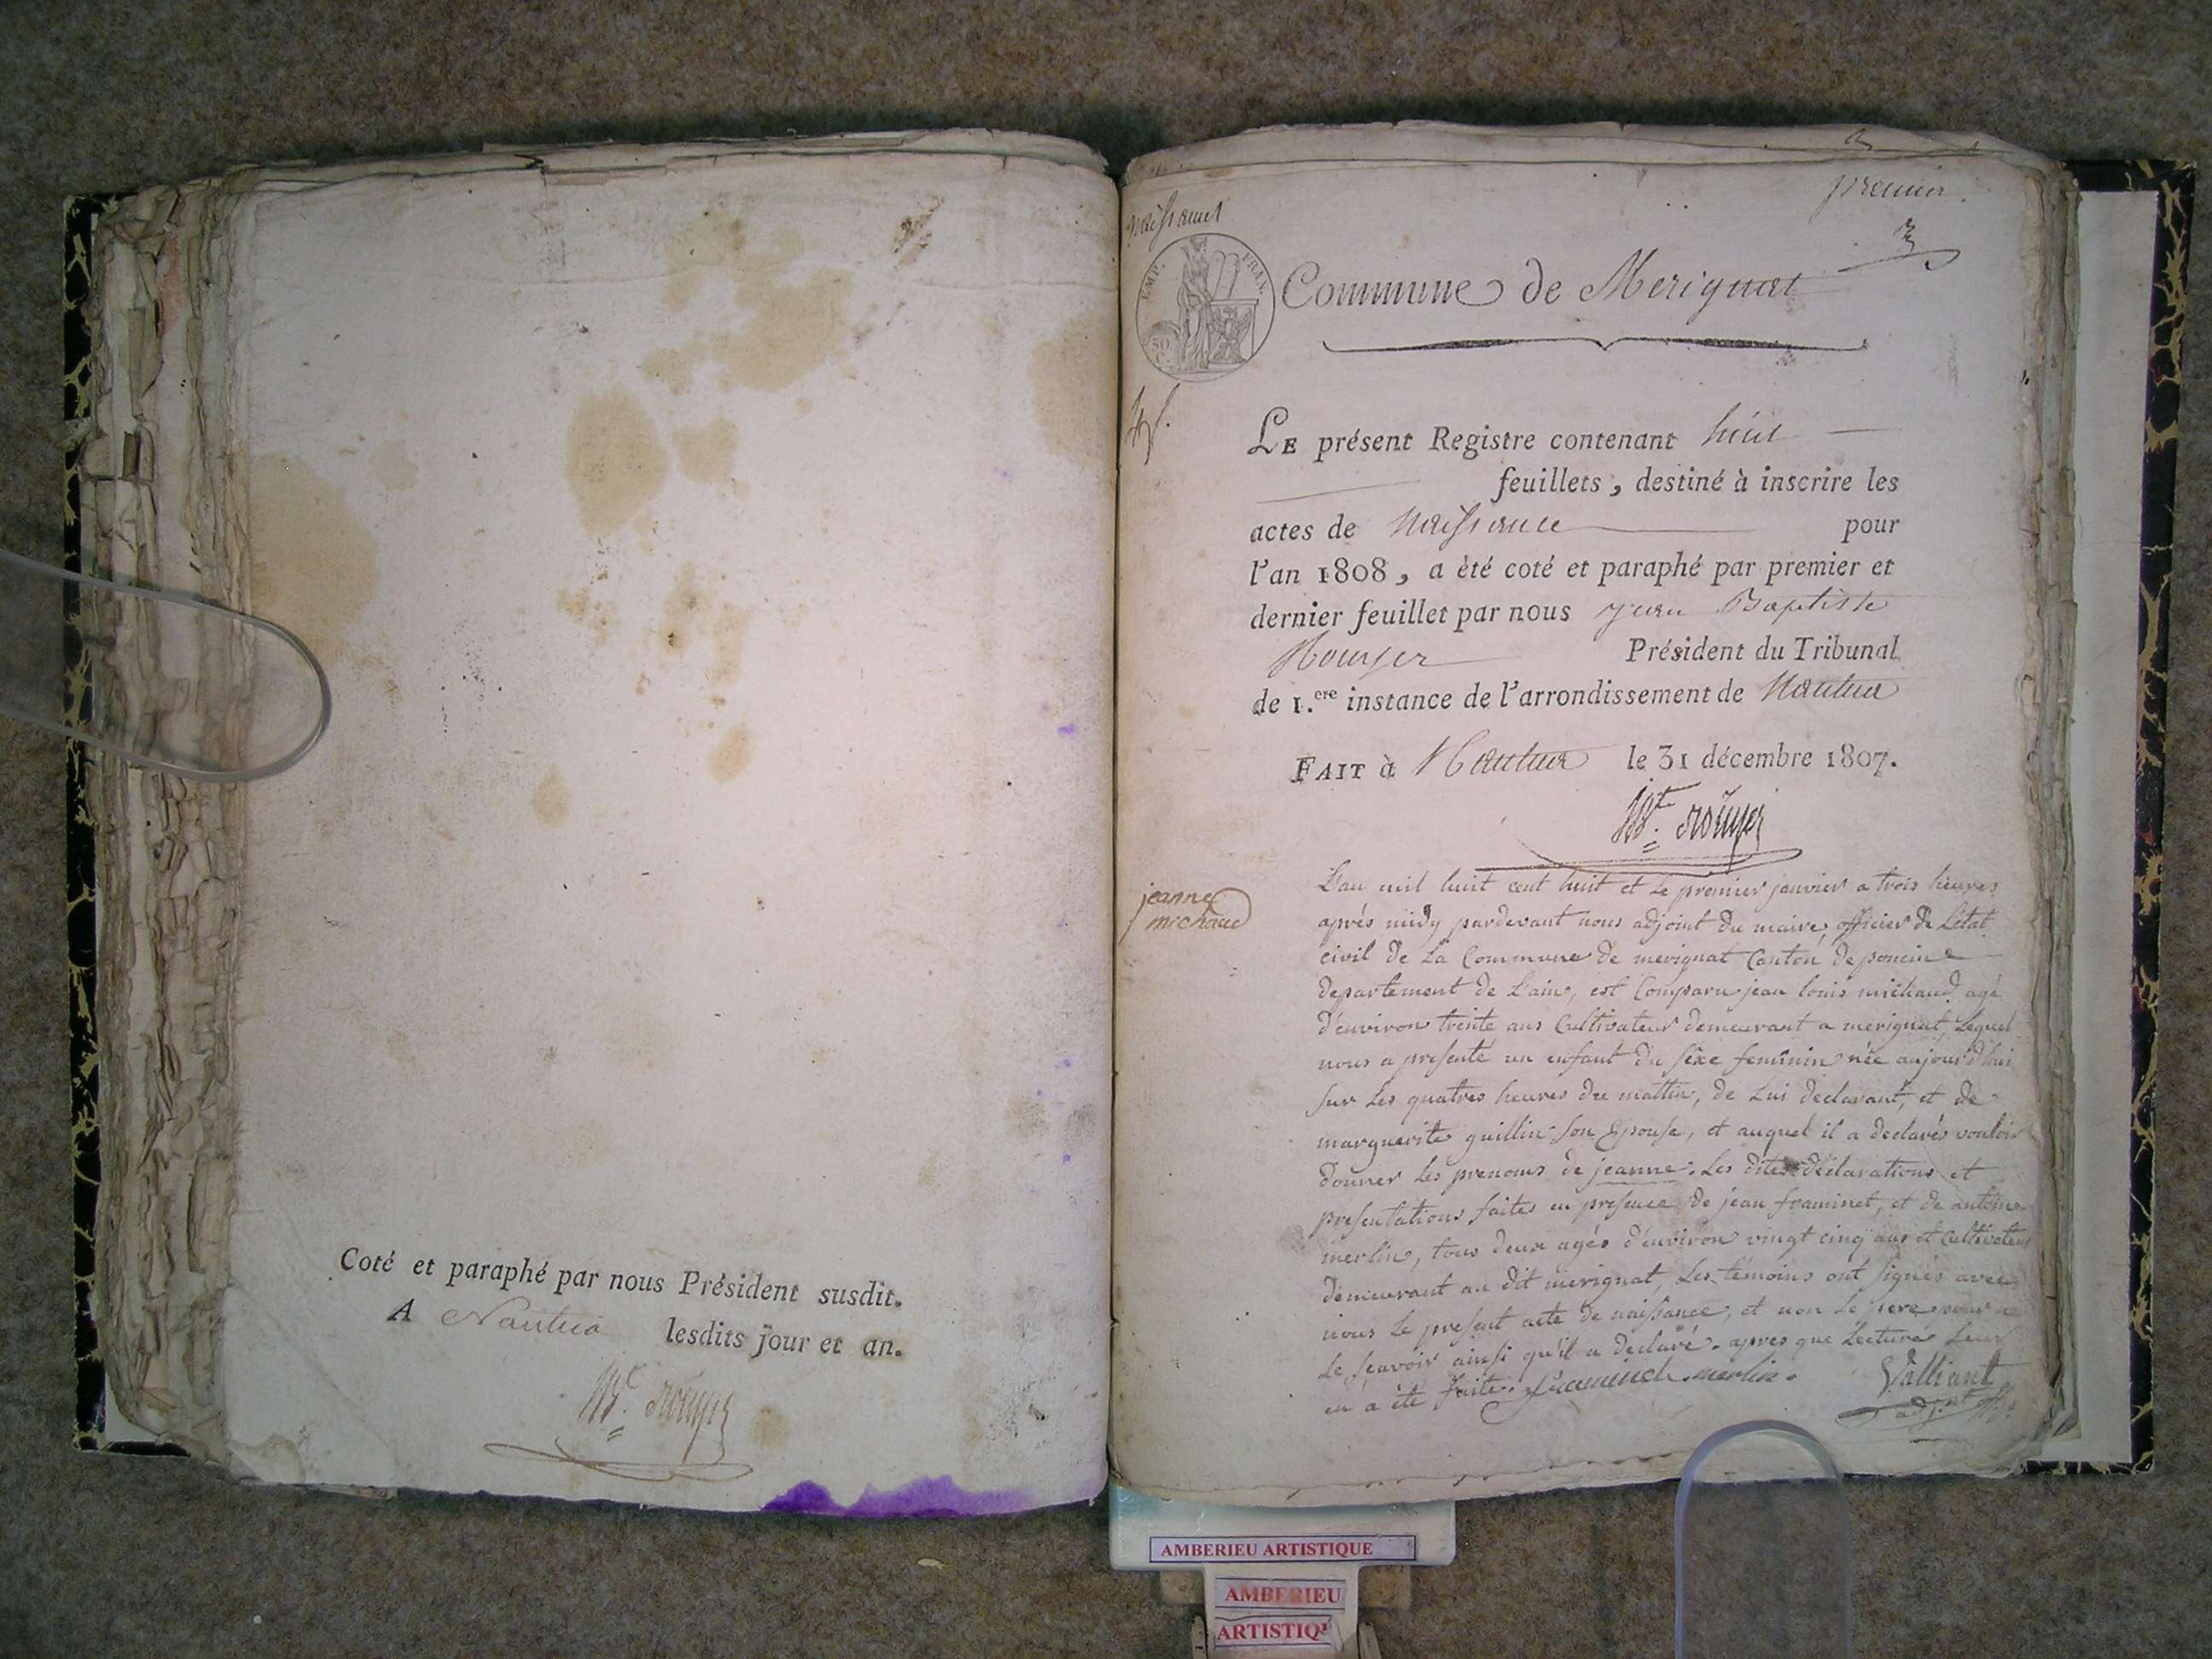 Coté et paraphé par nous Président susdit.
A Nantua lesdits jour et an.
Bte. rouyer
premier.
naissances
EMP. FRAN.
50 C.
Commune de Merignat
LE présent Registre contenant huit
feuillets, destiné à inscrire les
actes de Naissance pour
l'an 1808, a èté coté et paraphé par premier et
dernier feuillet par nous jean Baptiste
Rouyer Président du Tribunal
de 1.ere instance de l'arrondissement de Nantua
FAIT à Nantua le 31 décembre 1807.
Bte. rouyer
jeanne
michaud
L'an mil huit cent huit et Le premier janvier a trois heures
après midy pardevant nous adjoint du maire, officier de L'état
civil de La Commune de merignat Canton de poncin
departement de L'ain, est Comparu jean louis michaud agé
d'environ trente ans Cultivateur demeurant a merignat, Lequel
nous a presenté un enfant du sèxe feminin née aujourd'hui
sur Les quatres heures du mattin, de Lui declarant, et de
marguerite guillin son Epouse, et auquel il a declarés vouloir
donner Les prenoms de jeanne. Les dites déclarations et
presentations faites en presence de jean framinet, et de antoine
merlin, tous deux agés d'environ vingt cinq ans et Cultivateurs
demeurant au dit merignat, Les témoins ont signés avec
nous Le present acte de naissance, et non Le pere pour ne
Le sçavoir ainsi qu'il a declaré. apres que Lecture Leur
en a été faite. framinet. merlin. Valliant
adj.nt
AMBERIEU ARTISTIQUE
AMBERIEU
ARTISTIQ